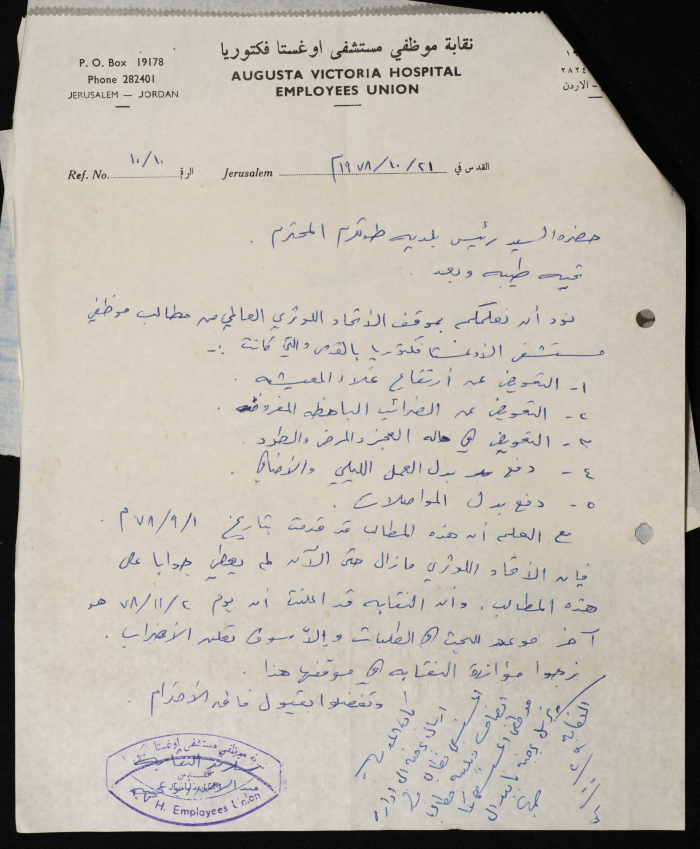 نقابة موظفي مستشفى اوغستا فكتوريا
P. O. Box 19178
Phone 282401
JERUSALEM — JORDAN
AUGUSTA VICTORIA HOSPITAL
EMPLOYEES UNION
٢٨٢٤
- الاردن
Ref. No. ١٠/١٠ الرقم
Jerusalem ٢١/١٠/١٩٧٨م القدس في
حضرة السيد رئيس بلدية طولكرم المحترم .
تحية طيبة وبعد .
نود أن نعلمكم بموقف الاتحاد اللوثري العالمي من مطالب موظفي
مستشفى الاوغستا فكتوريا بالقدس والتي كانت :-
١- التعويض عن ارتفاع غلاء المعيشه .
٢- التعويض عن الضرائب الباهظه المفروضه .
٣- التعويض في حاله العجز والمرض والطرد .
٤- دفع بدل العمل الليلي والاضافي .
٥- دفع بدل المواصلات .
مع العلم أن هذه المطالب قد قدمت بتاريخ ٧٨/٩/١م
فإن الاتحاد اللوثري مازال حتى الآن لم يعطي جوابا على
هذه المطالب . وأن النقابه قد اعلنت أن يوم ٧٨/١١/٢ هو
آخر موعد للبحث في الطلبات وإلا سوف تعلن الاضراب .
نرجوا مؤازرة النقابه في موقفها هذا .
وتفضلوا بقبول فائق الاحترام
موظفي مستشفى اوغستا
H. Employees Union